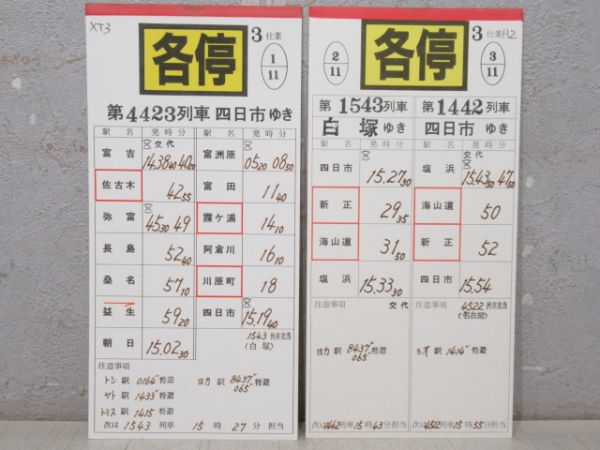 XT3
各停
3仕業
1
11
第4423列車 四日市 ゆき
駅名 発時分 駅名 発時分
交代
富吉 14.38 40 40 20 富洲原 05 20 08 50
佐古木 42 55 富田 11 40
弥富 45 30 49 霞ケ浦 14 10
長島 52 40 阿倉川 16 10
桑名 57 10 川原町 18
益生 59 20 四日市 15.19 40
朝日 15.02 30
1543 列車充当
(白塚)
注意事項
トシ駅 0164 特遊 ヨカ駅 8437 特遊
065
ヤト駅 1433 特遊
トミス駅 1415 特遊
次は 1543 列車 15時 27分担当
2
11
各停
3仕業
3
11
第 1543 列車
白塚 ゆき
駅名 発時分
四日市 15.27 30
新正 29 35
海山道 31 50
塩浜 15.33 30
注意事項 交代
ヨカ駅 8437 特遊
065
次は 1442 列車 15時 43分担当
第 1442 列車
四日市 ゆき
駅名 発時分
交代
塩浜 15.43 50 47 50
海山道 50
新正 52
四日市 15.54
注意事項
4522 列車充当
(名古屋)
駅 1414 特遊
次は 4522 列車 15時 55分担当